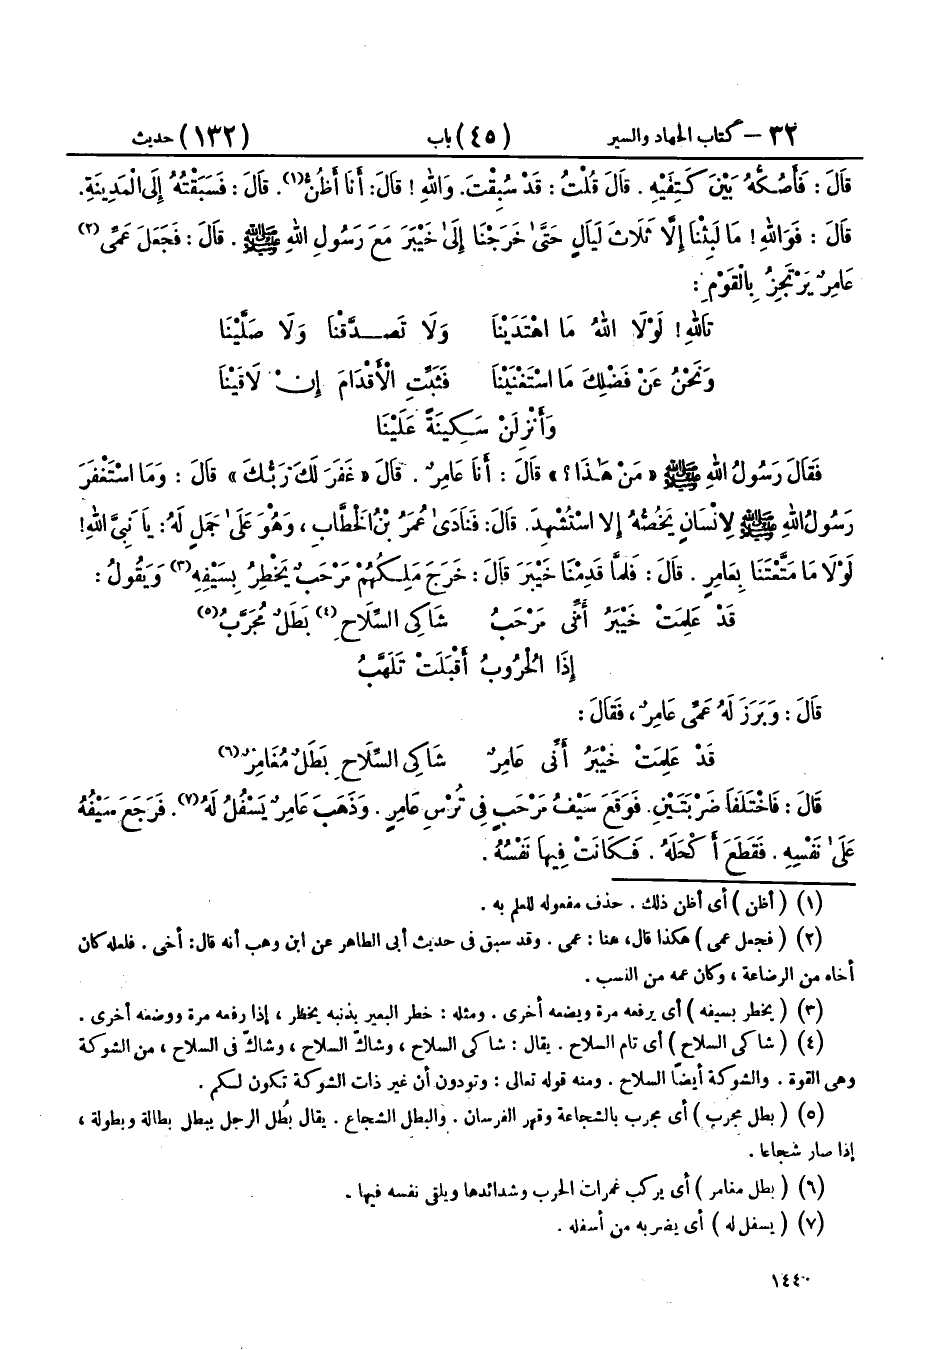 ٣٢ – كتاب الجهاد والسير (٤٥) باب (١٣٢) حديث
قَالَ: فَأَصُكُّهُ بَيْنَ كَتِفَيْهِ. قَالَ قُلْتُ: قَدْ سُبِقْتَ. وَاللهِ! قَالَ: أَنَا أَظُنُّ(١). قَالَ: فَسَبَقْتُهُ إِلَى الْمَدِينَةِ.
قَالَ: فَوَاللهِ! مَا لَبِثْنَا إِلَّا ثَلَاثَ لَيَالٍ حَتَّىٰ خَرَجْنَا إِلَىٰ خَيْبَرَ مَعَ رَسُولِ اللهِ ﷺ. قَالَ: فَجَعَلَ عَمِّي(٢)
عَامِرٌ يَرْتَجِزُ بِالْقَوْمِ:
تَاللهِ! لَوْلَا اللهُ مَا اهْتَدَيْنَا وَلَا تَصَدَّقْنَا وَلَا صَلَّيْنَا
وَنَحْنُ عَنْ فَضْلِكَ مَا اسْتَغْنَيْنَا فَثَبِّتِ الْأَقْدَامَ إِنْ لَاقَيْنَا
وَأَنْزِلَنْ سَكِينَةً عَلَيْنَا
فَقَالَ رَسُولُ اللهِ ﷺ «مَنْ هَٰذَا؟» قَالَ: أَنَا عَامِرٌ. قَالَ «غَفَرَ لَكَ رَبُّكَ» قَالَ: وَمَا اسْتَغْفَرَ
رَسُولُ اللهِ ﷺ لِإِنْسَانٍ يَخُصُّهُ إِلَّا اسْتُشْهِدَ. قَالَ: فَنَادَىٰ عُمَرُ بْنُ الْخَطَّابِ، وَهُوَ عَلَىٰ جَمَلٍ لَهُ: يَا نَبِيَّ اللهِ!
لَوْلَا مَا مَتَّعْتَنَا بِعَامِرٍ. قَالَ: فَلَمَّا قَدِمْنَا خَيْبَرَ قَالَ: خَرَجَ مَلِكُهُمْ مَرْحَبٌ يَخْطِرُ بِسَيْفِهِ(٣) وَيَقُولُ:
قَدْ عَلِمَتْ خَيْبَرُ أَنِّي مَرْحَبُ شَاكِي السِّلَاحِ(٤) بَطَلٌ مُجَرَّبُ(٥)
إِذَا الْحُرُوبُ أَقْبَلَتْ تَلَهَّبُ
قَالَ: وَبَرَزَ لَهُ عَمِّي عَامِرٌ، فَقَالَ:
قَدْ عَلِمَتْ خَيْبَرُ أَنِّي عَامِرٌ شَاكِي السِّلَاحِ بَطَلٌ مُغَامِرٌ(٦)
قَالَ: فَاخْتَلَفَا ضَرْبَتَيْنِ. فَوَقَعَ سَيْفُ مَرْحَبٍ فِي تُرْسِ عَامِرٍ. وَذَهَبَ عَامِرٌ يَسْفُلُ لَهُ(٧). فَرَجَعَ سَيْفُهُ
عَلَىٰ نَفْسِهِ. فَقَطَعَ أَكْحَلَهُ. فَكَانَتْ فِيهَا نَفْسُهُ.
(١) (أظن) أى أظن ذلك. حذف مفعوله للعلم به.
(٢) (فجعل عمى) هكذا قال، هنا: عمى. وقد سبق فى حديث أبى الطاهر عن ابن وهب أنه قال: أخى. فلعله كان
أخاه من الرضاعة، وكان عمه من النسب.
(٣) (يخطر بسيفه) أى يرفعه مرة ويضعه أخرى. ومثله: خطر البعير بذنبه يخطر، إذا رفعه مرة ووضعه أخرى.
(٤) (شاكى السلاح) أى تام السلاح. يقال: شاكى السلاح، وشاكّ السلاح، وشاكّ فى السلاح، من الشوكة
وهى القوة. والشوكة أيضًا السلاح. ومنه قوله تعالى: وتودون أن غير ذات الشوكة تكون لكم.
(٥) (بطل مجرب) أى مجرب بالشجاعة وقهر الفرسان. والبطل الشجاع. يقال بَطُل الرجل يبطل بطالة وبطولة،
إذا صار شجاعا.
(٦) (بطل مغامر) أى يركب غمرات الحرب وشدائدها ويلقى نفسه فيها.
(٧) (يسفل له) أى يضربه من أسفله.
١٤٤٠